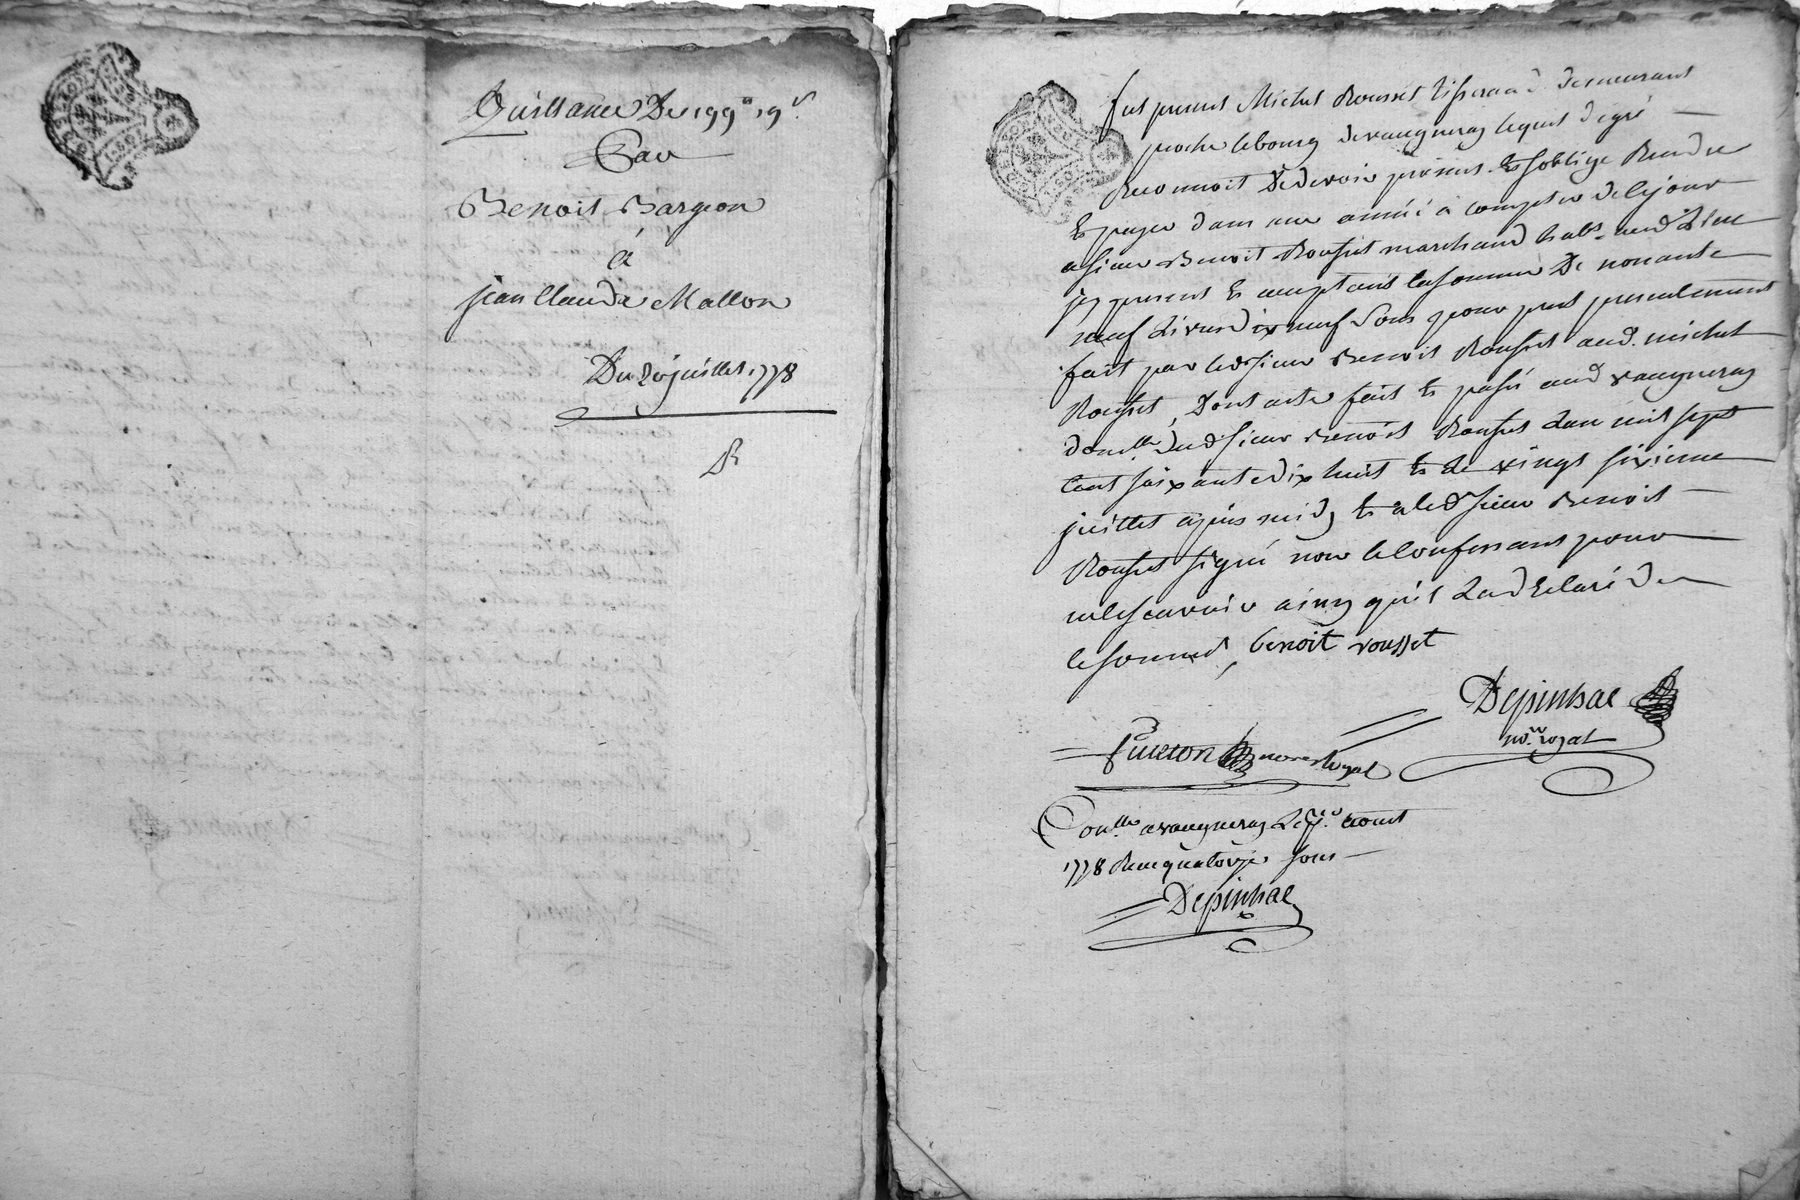 Quittance De 199ˡᵗ 19ˢ
Par
Benoit Bargeon
à
jean Claude Mallon
Du 20 juillet 1778
fut present Michel Rousset tisserand demeurant
proche le bourg de vaugneray lequel de gré
Reconnoit De devoir promet et soblige Rendre
Et payer dans une année à compter de ce jour
a sieur Benoit Rousset marchand habt. aud Lieu
icy present et acceptant la somme De nonante
neuf Livres dix neuf Sous pour prest presentement
fait par led sieur Benoit Rousset aud. michel
Rousset, Dont acte fait et passé aud vaugneray
domlle dud sieur Benoit Rousset Lan mil sept
cent soixante dix huit et le vingt sixieme
juillet apres midy et a led sieur Benoit
Rousset signé non le confessant pour
ne le scavoir ainsy quil La declaré de
ce sommé, benoit rousset
Depinhac
nore. royal
nore Royal
Conllé a vaugneray Le aoust
1778 Recu quatorze sous
Depinhac